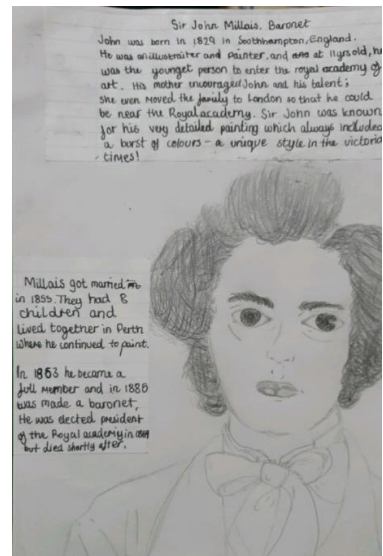 Sir John Millais, Baronet
John was born in 1829 in Soothhampton, England.
He was an illustraiter and Painter, and at 11yrsold, he
was the younget person to enter the royal academy of
art. His mother encouraged John and his talent;
she even moved the family to London so that he could
be near the Royal academy. Sir John was known
for his very detailed painting which always included
a burst of colours - a unique style in the victoria
times!
Millais got married
in 1855. They had 8
children and
lived together in Perth
where he continued to paint.
In 1863 he became a
full member and in 1885
was made a baronet,
He was elected president
of the Royal academy in
but died shortly after.